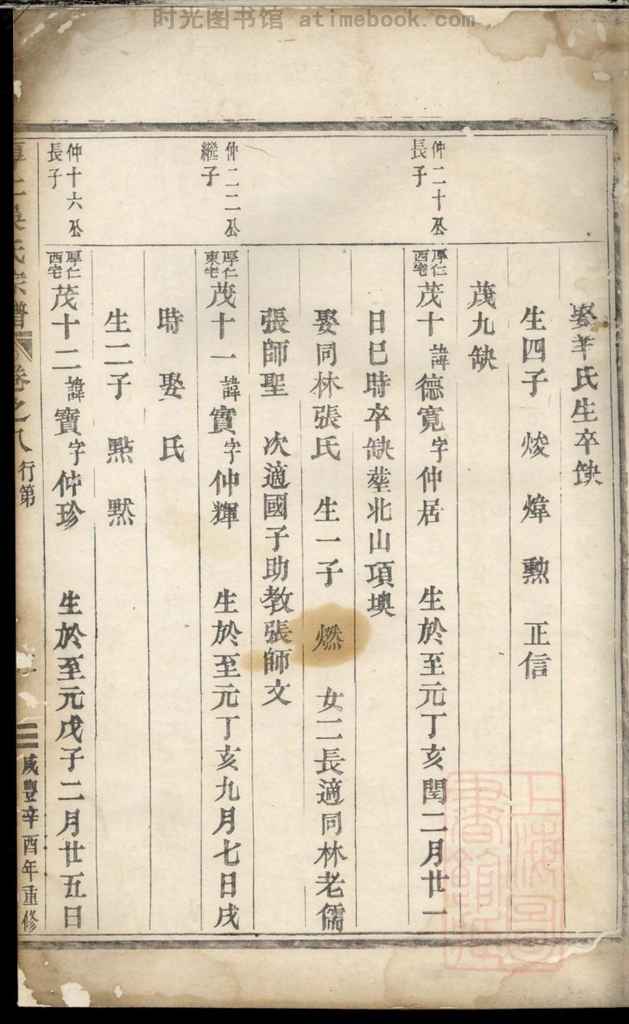 时光图书馆 atimebook.com
娶羊氏生卒缺
生四子 焌 煒 勲 正信
茂九缺
仲二十公長子
厚仁西宅茂十諱德寬字仲居 生於至元丁亥閏二月廿一
日巳時卒缺塟北山項墺
娶同林張氏 生一子 燃 女二長適同林老儒
張師聖 次適國子助教張師文
仲二二公繼子
厚仁東宅茂十一諱實字仲輝 生於至元丁亥九月七日戌
時 娶 氏
生二子 㸃 黙
仲十六公長子
厚仁西宅茂十二諱寶字仲珍 生於至元戊子二月廿五日
吳氏宗譜 卷之八 行第 咸豐辛酉年重修